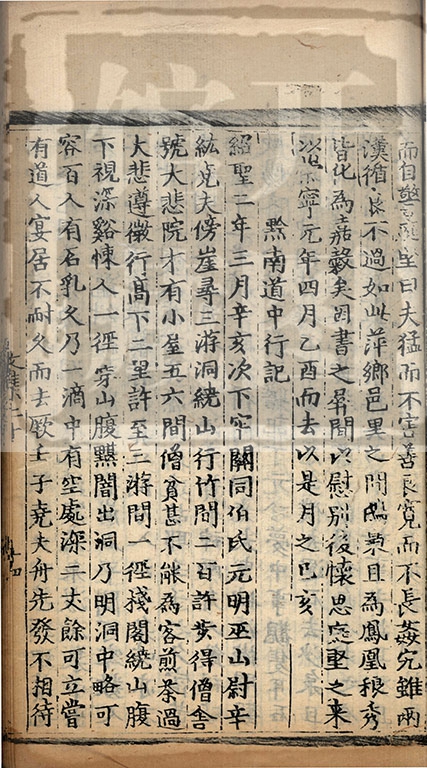 而自警堅曰夫猛而不害善良寬而不長姦宄雖兩
漢循良不過如此萍鄉邑里之間鴟梟且為鳳凰稂秀
皆化為嘉穀矣因書之屏間以慰別後懷思庭堅之來
以崇寧元年四月乙酉而去以是月之己亥
黔南道中行記
紹聖二年三月辛亥次下牢關同伯氏元明巫山尉辛
紘堯夫傍崖尋三游洞繞山行竹間二百許步得僧舍
號大悲院才有小屋五六間僧貧甚不能為客煎茶過
大悲遵微行高下二里許至三游間一徑棧閣繞山腹
下視深谿悚人一徑穿山腹黮闇出洞乃明洞中略可
容百人有石乳久乃一滴中有空處深二丈餘可立嘗
有道人宴居不耐久而去厥壬子堯夫舟先發不相待